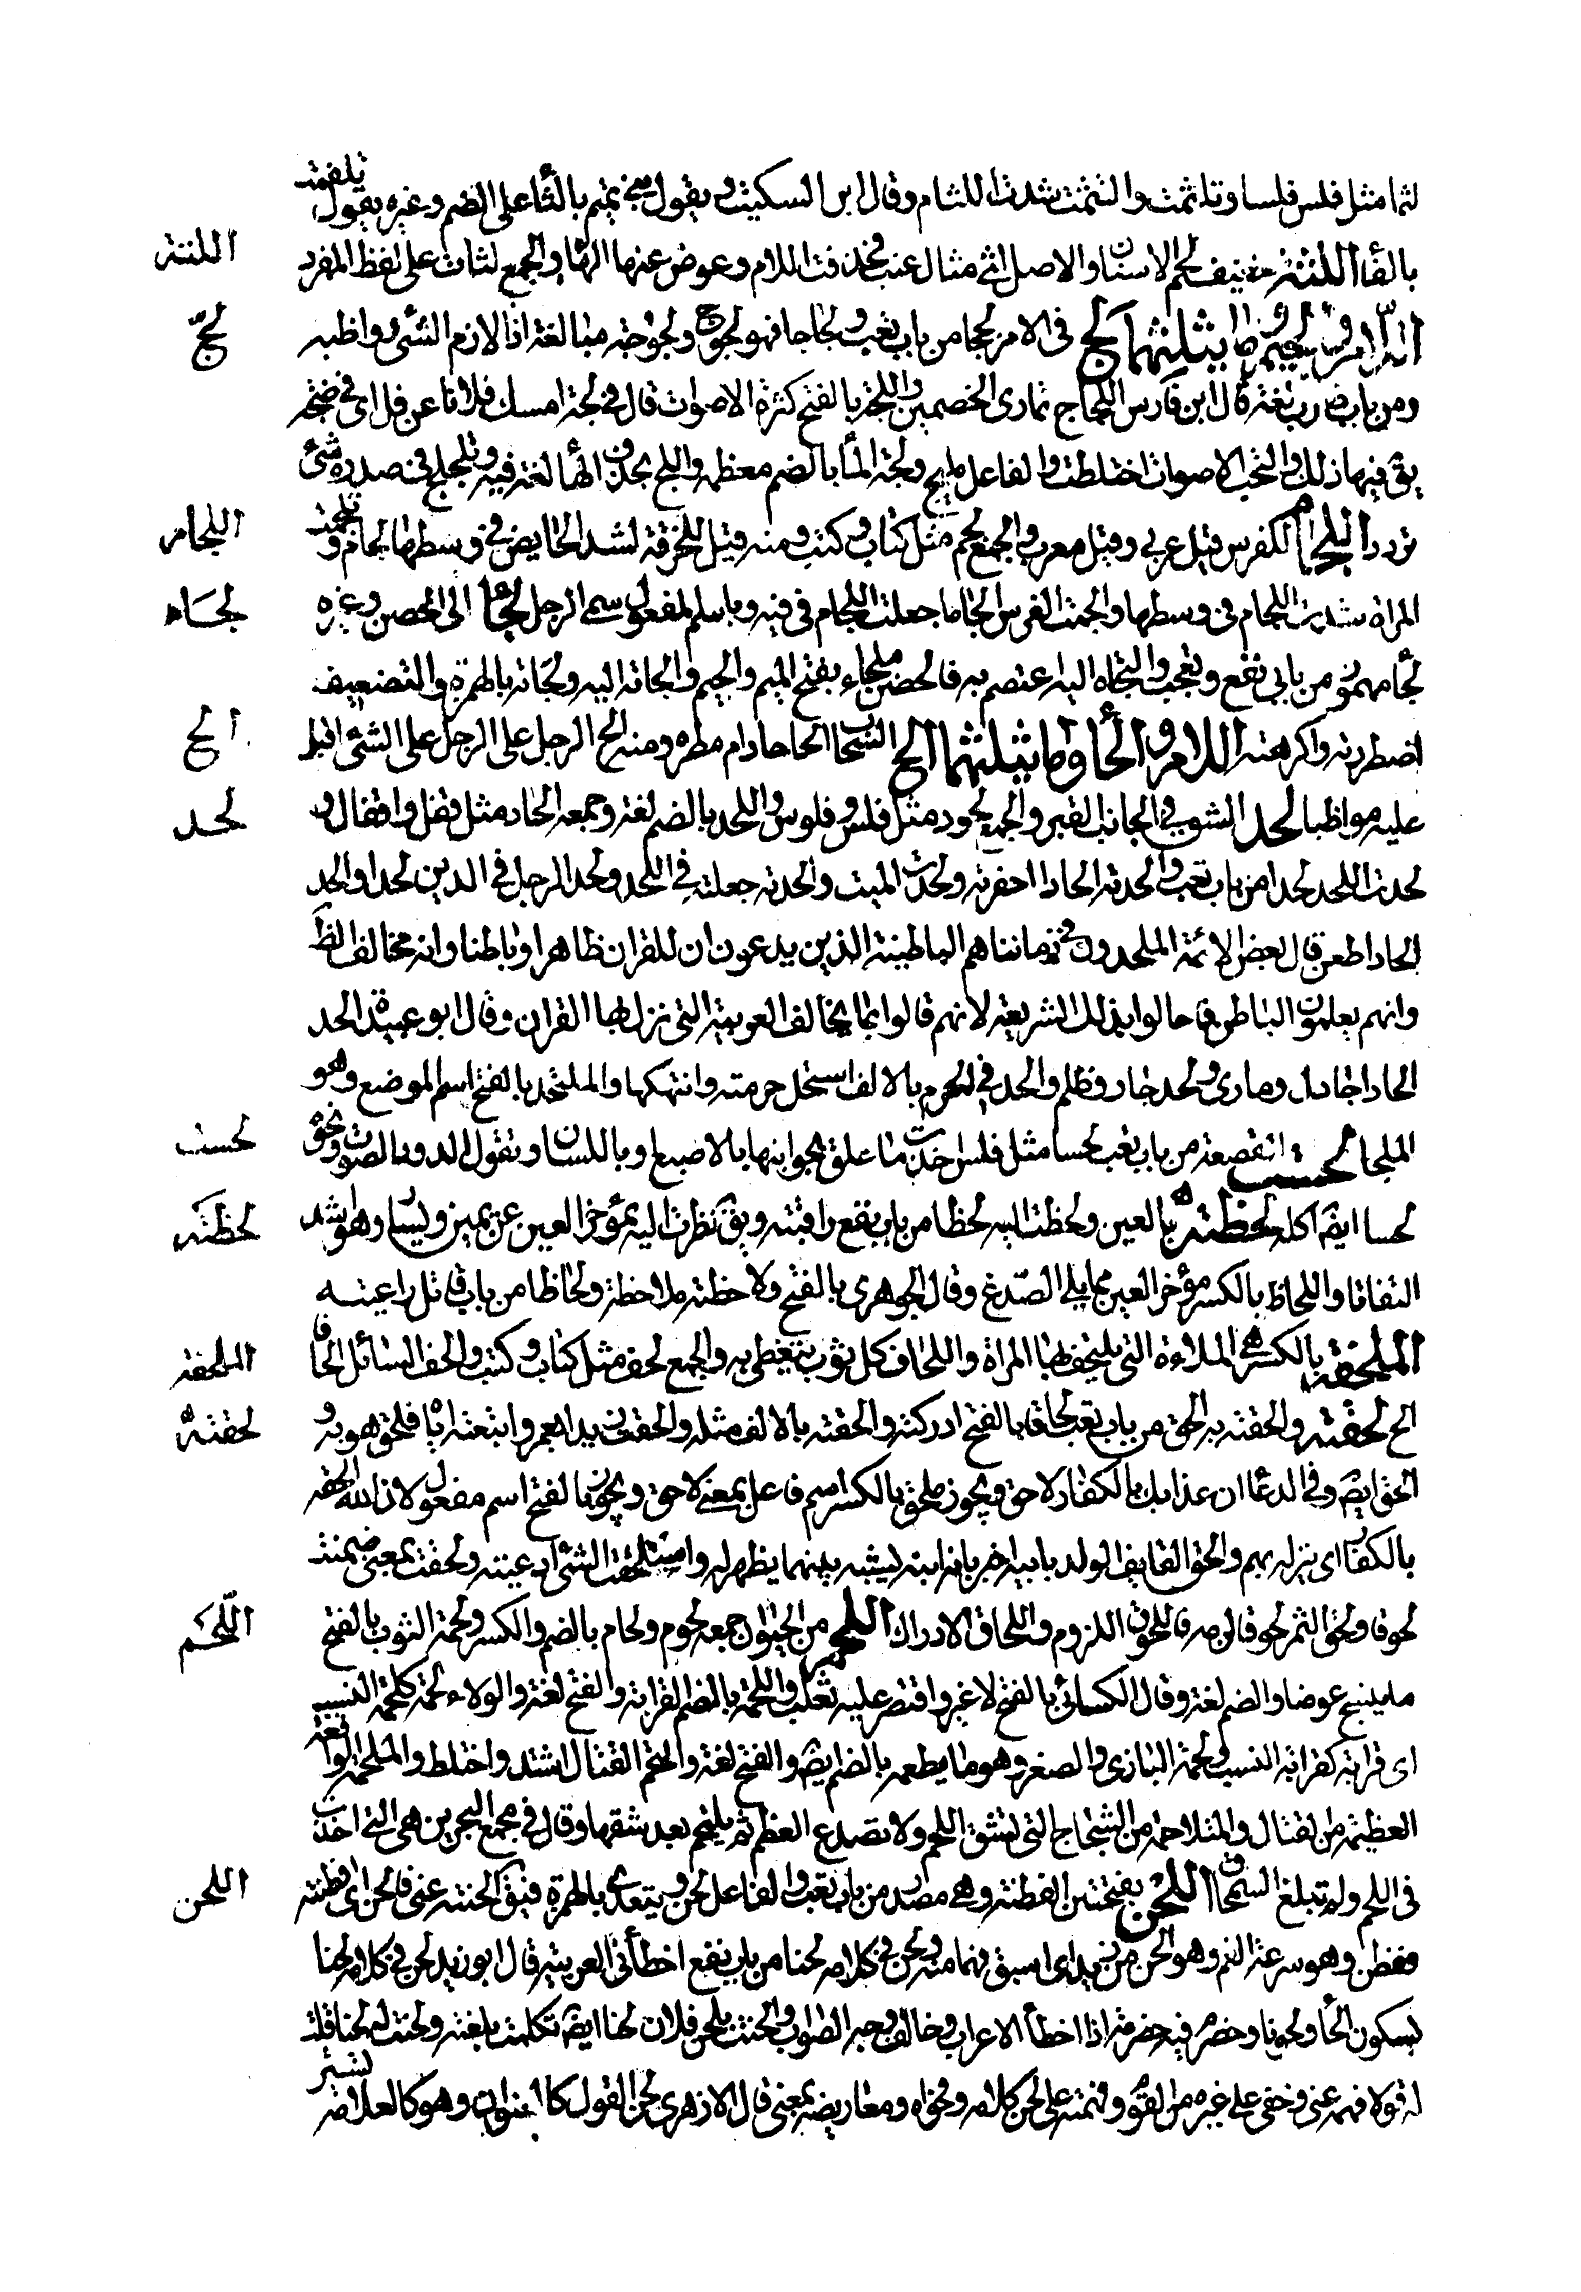 لثما مثل فلس فلسا وتلثمت والتثمت شددت اللثام وقال ابن السكيت ويقول بنى تميم بالثاء على الفم وغيره يقول تلفمت
بالفاء اللثة خفيف لحم الاسنان والاصل لثى مثال عنب فحذفت اللام وعوض عنها الهاء والجمع لثات على لفظ المفرد
اللثة
اللام والجيم وما يثلثهما لج فى الامر لججا من باب تعب ولجاجا فهو لجوج ولجوجة مبالغة اذا لازم الشئ وواظبه
لجّ
ومن باب ضرب لغة قال ابن فارس اللجاج تمادى الخصمين واللجة بالفتح كثرة الاصوات قال فى لجة امسك فلانا عن فل اى فى ضجة
يق فيها ذلك والتجت الاصوات اختلطت والفاعل ملتج ولجة الماء بالضم معظمه واللج بحذف الهاء لغة فيه وتلجلج فى صدره شئ
تردد اللجام للفرس قيل عربى وقيل معرب والجمع لجم مثل كتاب وكتب ومنه قيل للخرقة تشد الحايض فى وسطها لجام وتلجمت
اللجام
المراة شدت اللجام فى وسطها والجمت الفرس الجاما جعلت اللجام فى فيه وباسم المفعول سمى الرجل لجأ الى الحصن وغيره
لجاء
لجأ مهموز من بابى نفع وتعب والتجاه اليه اعتصم به فالحصن ملجاء بفتح الميم والجيم والجاته اليه ولجاته بالهمزة والتضعيف
اضطررته واكرهته اللام والحاء وما يثلثهما الح السحاب الحاحا دام مطره ومنه الح الرجل على الرجل على الشئ اقبل
الح
عليه مواظبا لحد الشق فى الجانب القبر والجمع لحود مثل فلس وفلوس واللحد بالضم لغة وجمعه الحاد مثل قفل واقفال و
لحد
لحدت اللحد لحدا من باب تعب والحدته الحادا احفرته ولحدت الميت والحدته جعلته فى اللحد ولحد الرجل فى الدين لحدا والحد
الحادا طعن قال بعض الائمة الملحدون فى زماننا هم الباطنية الذين يدعون ان للقران ظاهرا وباطنا وانه مخالف الظ
وانهم يعلمون الباطن فاحالوا بذلك الشريعة لانهم قالوا بما يخالف العربية التى نزل بها القران وقال ابو عبيدة الحد
الحادا جادل ومارى ولحد جار وظلم والحد فى الحرم بالالف استحل حرمته وانتهكها والملتحد بالفتح اسم الموضع وهو
الملجا لحست القصعة من باب تعب لحسا مثل فلس اخذت ما علق بجوانبها بالاصبع وباللسان ويقول الدود الصوف ونحوه
لحست
لحسا ايضا اكله لحظته بالعين ولحظت اليه لحظا من باب نفع راقبته ويق نظرت اليه بمؤخر العين عن يمين ويسار وهو اشد
لحظته
التفاتا واللحاظ بالكسر مؤخر العين مما يلى الصّدغ وقال الجوهرى بالفتح ولاحظته ملاحظة ولحاظا من باب قاتل راعيته
الملحفة بالكسر هى الملاءة التى يلتحف بها المراة واللحاف كل ثوب يتغطى به والجمع لحف مثل كتاب وكتب والحف السائل الحافا
الملحفة
الح لحقته والحقته به الحق من باب تعب لحاقا بالفتح ادركته والحقته بالالف مثله والحقت زيدا بعمرو اتبعته اياه فلحق هو به و
لحقته
الحق ايض وفى الدعاء ان عذابك بالكفار لاحق ويجوز ملحق بالكسر اسم فاعل بمعنى لاحق ويجوز بالفتح اسم مفعول لان الله الحقه
بالكفار اى ينزله بهم والحق القايف الولد بابيه اخبر بانه ابنه ليشبه بينهما يظهر له واستلحقت الشئ ادعيته ولحقت بمعنى ضمنته
لحوقا ولحق الثمر لحوقا لزمه فاللحوق اللزوم واللحاق الادراك اللحم من الحيوان جمعه لحوم ولحام بالضم والكسر ولحمة الثوب بالفتح
اللّحَم
ما ينسج عوضا والضم لغة وقال الكسائى بالفتح لاغير واقتصر عليه ثعلب واللحمة بالضم القرابة والفتح لغة والولاء لحمة كلحمة النسب
اى قرابة كقرابة النسب ولحمة البازى والصقر وهو ما يطعمه بالضم ايض والفتح لغة والتحم القتال اشتد واختلط والملحمة الواقعة
العظيمة من القتال والمتلاحمة من الشجاج التى تشق اللحم ولا تصدع العظم ثم يلتحم بعد شقها وقال فى مجمع البحرين هى التى اخذت
فى اللحم ولم تبلغ السمحاق اللحن بفتحتين الفطنة وهى مصدر من باب تعب والفاعل لحن ويتعدى بالهمزة فيق الحنته عنى فلحن اى افطنته
اللحن
ففطن وهو سرعة الفهم وهو الحن من زيد اى اسبق فهما منه ولحن فى كلامه لحنا من باب نفع اخطأ فى العربية قال ابو زيد لحن فى كلامه لحنا
بسكون الحاء ولحونا وحضرم فيه حضرمة اذا اخطأ الاعراب وخالف وجه الصواب والحنت بلحن فلان لحنا ايض تكلمت بلغته ولحنت له لحنا قلت
له قولا فهمه عنى وخفى على غيره من القوم وفهمته على لحن كلامه وفحواه ومعاريضه بمعنى قال الازهرى لحن القول كالعنوان وهو كالعلامة تشير